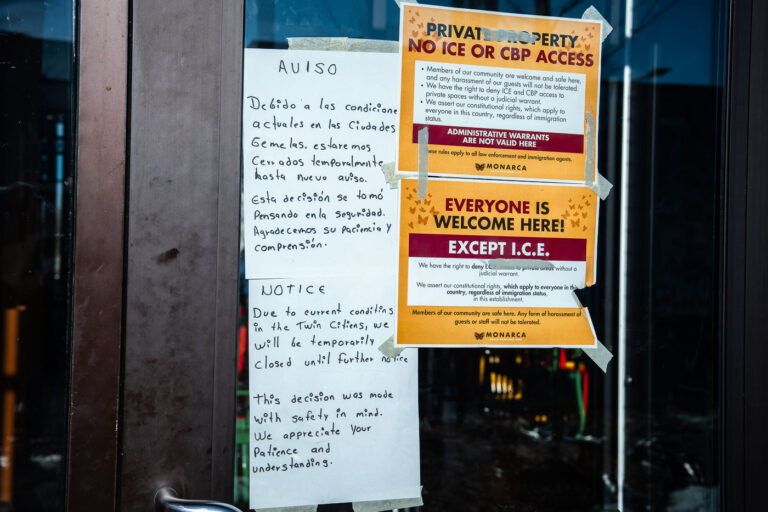 AVISO
Debido a las condicione
actuales en las Ciudades
Gemelas, estaremos
Cerrados temporalmente
hasta nuevo aviso.
Esta decisión se tomó
Pensando en la seguridad.
Agradecemos su paciencia y
comprensión.
NOTICE
Due to current conditins
in the Twin Citiens, we
will be temporarily
closed until further notice
This decision was made
with safety in mind.
We appreciate your
Patience and
understanding.
PRIVATE PROPERTY
NO ICE OR CBP ACCESS
• Members of our community are welcome and safe here,
and any harassment of our guests will not be tolerated.
• We have the right to deny ICE and CBP access to
private spaces without a judicial warrant.
• We assert our constitutional rights, which apply to
everyone in this country, regardless of immigration
status.
ADMINISTRATIVE WARRANTS
ARE NOT VALID HERE
These rules apply to all law enforcement and immigration agents.
MONARCA
EVERYONE IS
WELCOME HERE!
EXCEPT I.C.E.
We have the right to deny access to private areas without a
judicial warrant.
We assert our constitutional rights, which apply to everyone in the
country, regardless of immigration status,
in this establishment.
Members of our community are safe here. Any form of harassment of
guests or staff will not be tolerated.
MONARCA